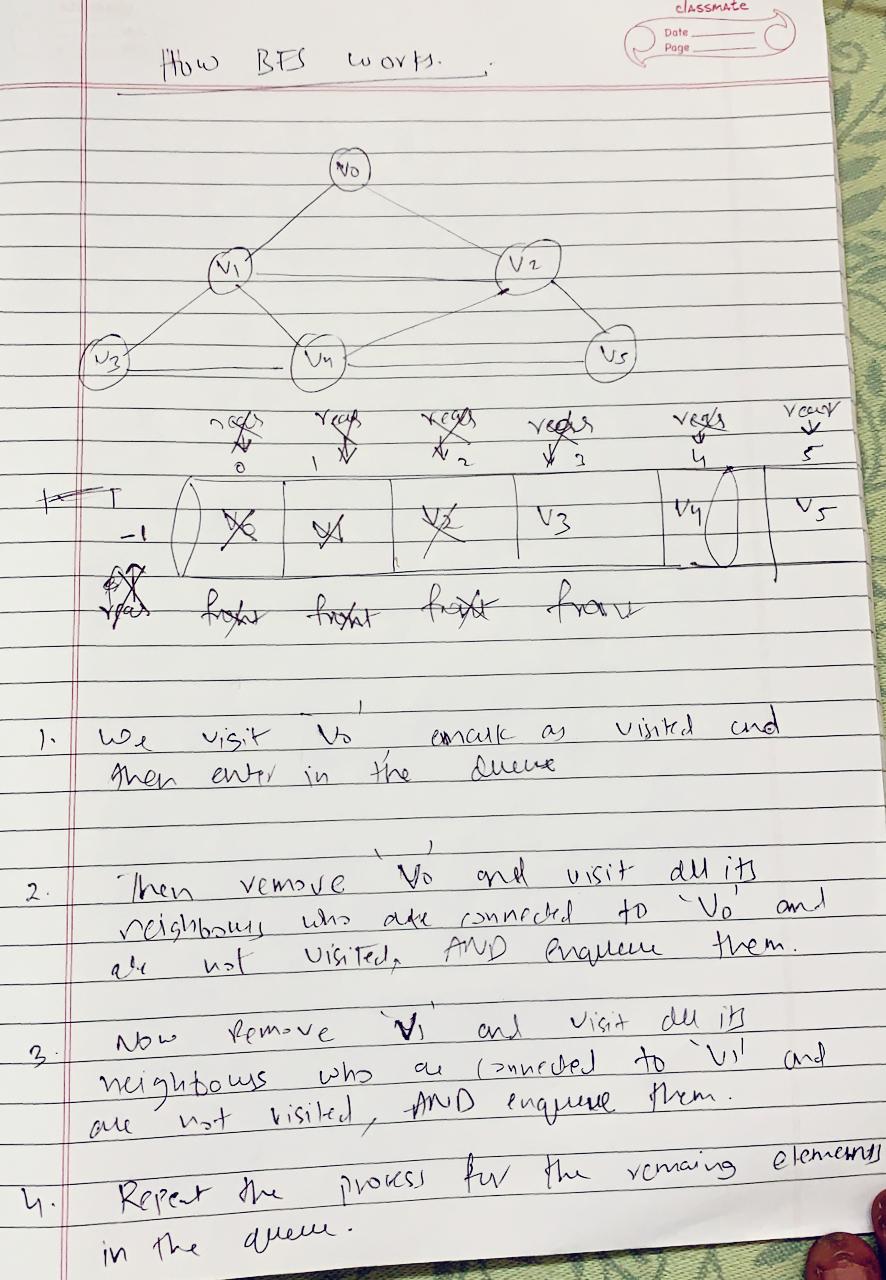 classmate
Date
Page
How BFS works.
V0
V1 V2
V3 V4 V5
rear rear rear rear rear rear
0 1 2 3 4 5
-1 V0 V1 V2 V3 V4 V5
rear front front front front
1. We visit 'V0', emark as visited and
then enter in the Queue
2. Then remove 'V0' and visit all its
neighbours who are connected to 'V0' and
are not visited, AND enqueue them.
3. Now Remove 'V1' and visit all its
neighbours who are connected to 'V1' and
are not visited, AND enqueue them.
4. Repeat the process for the remaing elements
in the queue.